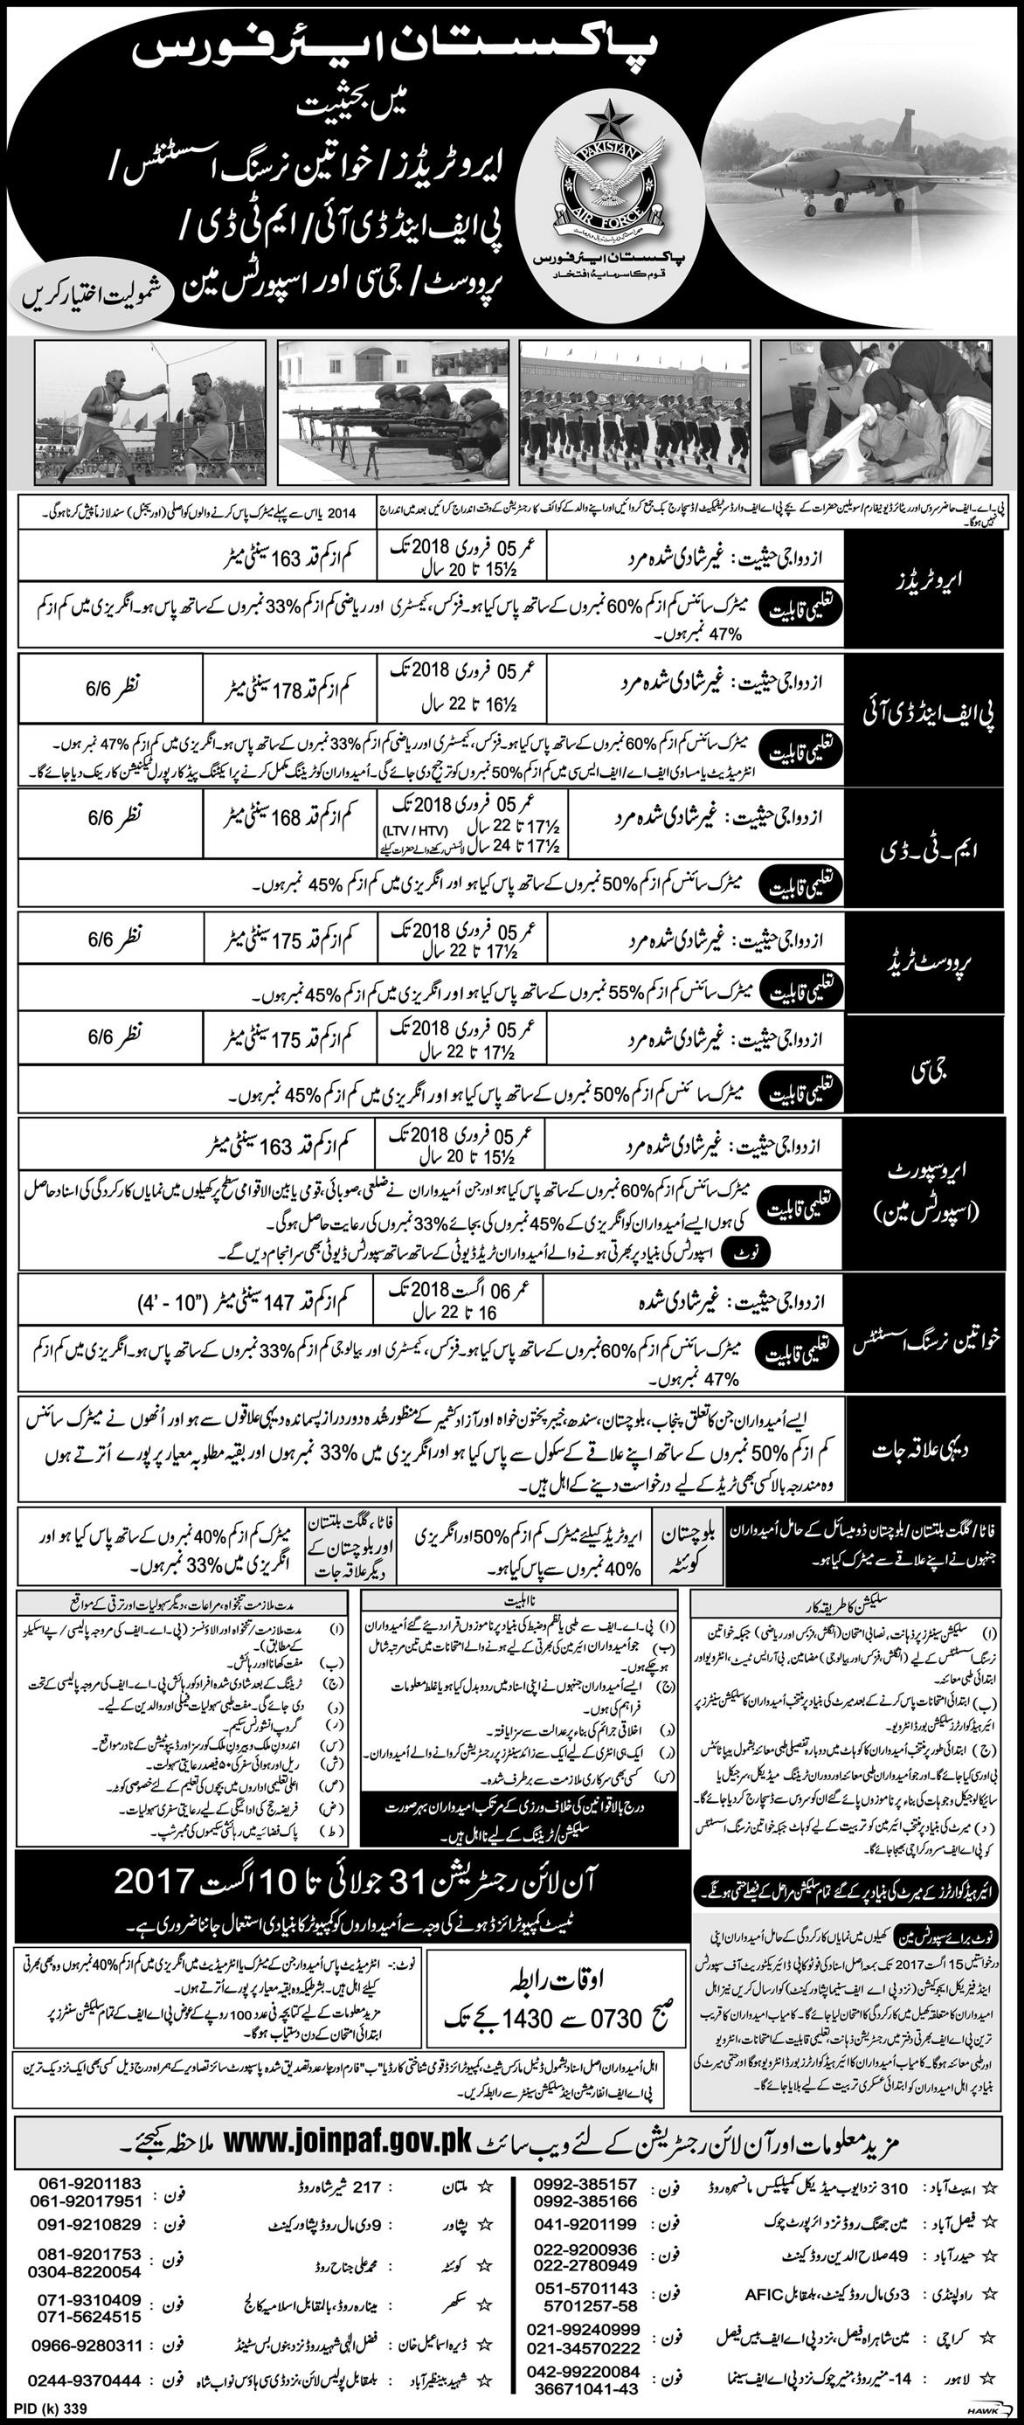 پاکستان ایئر فورس
میں بحیثیت
ایرو ٹریڈز / خواتین نرسنگ اسسٹنٹس /
پی ایف اینڈ ڈی آئی / ایم ٹی ڈی /
پرووسٹ / جی سی اور اسپورٹس مین
شمولیت اختیار کریں
PAKISTAN
AIR FORCE
پاکستان ایئر فورس
قوم کا سرمایۂ افتخار
پی۔اے۔ایف حاضر سروس اور ریٹائرڈ یونیفارم/سویلین حضرات کے بچے پی اے ایف وارڈ سرٹیفکیٹ/ڈسچارج بک جمع کروائیں اور اپنے والد کے کوائف کا رجسٹریشن کے وقت اندراج کرائیں بعد میں اندراج نہیں ہوگا۔
2014 یا اس سے پہلے میٹرک پاس کرنے والوں کو اصلی (اوریجنل) سند لازماً پیش کرنا ہوگی۔
ایرو ٹریڈز
ازدواجی حیثیت: غیر شادی شدہ مرد
عمر 05 فروری 2018 تک
15½ تا 20 سال
کم از کم قد 163 سینٹی میٹر
تعلیمی قابلیت
میٹرک سائنس کم از کم %60 نمبروں کے ساتھ پاس کیا ہو۔ فزکس، کیمسٹری اور ریاضی کم از کم %33 نمبروں کے ساتھ پاس ہو۔ انگریزی میں کم از کم
%47 نمبر ہوں۔
پی ایف اینڈ ڈی آئی
ازدواجی حیثیت: غیر شادی شدہ مرد
عمر 05 فروری 2018 تک
16½ تا 22 سال
کم از کم قد 178 سینٹی میٹر
نظر 6/6
تعلیمی قابلیت
میٹرک سائنس کم از کم %60 نمبروں کے ساتھ پاس کیا ہو۔ فزکس، کیمسٹری اور ریاضی کم از کم %33 نمبروں کے ساتھ پاس ہو۔ انگریزی میں کم از کم %47 نمبر ہوں۔
انٹرمیڈیٹ یا مساوی ایف اے/ایف ایس سی میں کم از کم %50 نمبروں کو ترجیح دی جائے گی۔ اُمیدواران کو ٹریننگ مکمل کرنے پر ایکٹنگ پیڈ کارپورل ٹیکنیشن کا رینک دیا جائے گا۔
ایم۔ٹی۔ڈی
ازدواجی حیثیت: غیر شادی شدہ مرد
عمر 05 فروری 2018 تک
17½ تا 22 سال
17½ تا 24 سال (LTV / HTV) لائسنس رکھنے والے حضرات کیلئے
کم از کم قد 168 سینٹی میٹر
نظر 6/6
تعلیمی قابلیت
میٹرک سائنس کم از کم %50 نمبروں کے ساتھ پاس کیا ہو اور انگریزی میں کم از کم %45 نمبر ہوں۔
پرووسٹ ٹریڈ
ازدواجی حیثیت: غیر شادی شدہ مرد
عمر 05 فروری 2018 تک
17½ تا 22 سال
کم از کم قد 175 سینٹی میٹر
نظر 6/6
تعلیمی قابلیت
میٹرک سائنس کم از کم %55 نمبروں کے ساتھ پاس کیا ہو اور انگریزی میں کم از کم %45 نمبر ہوں۔
جی سی
ازدواجی حیثیت: غیر شادی شدہ مرد
عمر 05 فروری 2018 تک
17½ تا 22 سال
کم از کم قد 175 سینٹی میٹر
نظر 6/6
تعلیمی قابلیت
میٹرک سائنس کم از کم %50 نمبروں کے ساتھ پاس کیا ہو اور انگریزی میں کم از کم %45 نمبر ہوں۔
ایرو سپورٹ
(اسپورٹس مین)
ازدواجی حیثیت: غیر شادی شدہ مرد
عمر 05 فروری 2018 تک
15½ تا 20 سال
کم از کم قد 163 سینٹی میٹر
تعلیمی قابلیت
میٹرک سائنس کم از کم %60 نمبروں کے ساتھ پاس کیا ہو اور جن اُمیدواران نے ضلعی، صوبائی، قومی یا بین الاقوامی سطح پر کھیلوں میں نمایاں کارکردگی کی اسناد حاصل
کی ہوں ایسے اُمیدواران کو انگریزی کے %45 نمبروں کی بجائے %33 نمبروں کی رعایت حاصل ہوگی۔
نوٹ اسپورٹس کی بنیاد پر بھرتی ہونے والے اُمیدواران ٹریڈ ڈیوٹی کے ساتھ ساتھ سپورٹس ڈیوٹی بھی سرانجام دیں گے۔
خواتین نرسنگ اسسٹنٹس
ازدواجی حیثیت: غیر شادی شدہ
عمر 06 اگست 2018 تک
16 تا 22 سال
کم از کم قد 147 سینٹی میٹر (4' - 10")
تعلیمی قابلیت
میٹرک سائنس کم از کم %60 نمبروں کے ساتھ پاس کیا ہو۔ فزکس، کیمسٹری اور بیالوجی کم از کم %33 نمبروں کے ساتھ پاس ہو۔ انگریزی میں کم از کم
%47 نمبر ہوں۔
دیہی علاقہ جات
ایسے اُمیدواران جن کا تعلق پنجاب، بلوچستان، سندھ، خیبر پختون خواہ اور آزاد کشمیر کے منظور شُدہ دور دراز پسماندہ دیہی علاقوں سے ہو اور اُنھوں نے میٹرک سائنس
کم از کم %50 نمبروں کے ساتھ اپنے علاقے کے سکول سے پاس کیا ہو اور انگریزی میں %33 نمبر ہوں اور بقیہ مطلوبہ معیار پر پورے اُترتے ہوں
وہ مندرجہ بالا کسی بھی ٹریڈ کے لیے درخواست دینے کے اہل ہیں۔
فاٹا/گلگت بلتستان/بلوچستان ڈومیسائل کے حامل اُمیدواران
جنہوں نے اپنے علاقے سے میٹرک کیا ہو۔
بلوچستان
کوئٹہ
ایرو ٹریڈ کیلئے میٹرک کم از کم %50 اور انگریزی
%40 نمبروں سے پاس کیا ہو۔
فاٹا، گلگت بلتستان
اور بلوچستان کے
دیگر علاقہ جات
میٹرک کم از کم %40 نمبروں کے ساتھ پاس کیا ہو اور
انگریزی میں %33 نمبر ہوں۔
سلیکشن کا طریقہ کار
(ا) سلیکشن سینٹرز پر ذہانت، نصابی امتحان (انگلش، فزکس اور ریاضی) جبکہ خواتین
نرسنگ اسسٹنٹس کے لیے (انگلش، فزکس اور بیالوجی) مضامین، پی آر ایس ٹیسٹ، انٹرویو اور
ابتدائی طبی معائنہ۔
(ب) ابتدائی امتحانات پاس کرنے کے بعد میرٹ کی بنیاد پر منتخب اُمیدواران کا سلیکشن سینٹرز پر
ائیر ہیڈکوارٹرز سلیکشن بورڈ انٹرویو۔
(ج) ابتدائی طور پر منتخب اُمیدواران کا کوہاٹ میں دوبارہ تفصیلی طبی معائنہ بشمول ہیپاٹائٹس
بی اور سی کیا جائے گا۔ اور جو اُمیدواران طبی معائنہ اور دوران ٹریننگ میڈیکل، سرجیکل یا
سائیکالوجیکل وجوہات کی بناء پر ناموزوں پائے گئے ان کو سروس سے ڈسچارج کر دیا جائے گا۔
(د) میرٹ کی بنیاد پر منتخب ائیر مین کو تربیت کے لیے کوہاٹ جبکہ خواتین نرسنگ اسسٹنٹس
کو پی اے ایف مسرور کراچی بھیجا جائے گا۔
ائیر ہیڈ کوارٹرز کے میرٹ کی بنیاد پر کے گئے تمام سلیکشن مراحل کے فیصلے حتمی ہونگے۔
نااہلیت
(ا) پی۔اے۔ایف سے طبی یا نظم و ضبط کی بنیاد پر ناموزوں قرار دیئے گئے اُمیدواران
(ب) جو اُمیدواران ائیرمین کی بھرتی کے لیے ہونے والے امتحانات میں تین مرتبہ شامل
ہو چکے ہوں۔
(ج) ایسے اُمیدواران جنہوں نے اپنی اسناد میں ردوبدل کیا ہو یا غلط معلومات
فراہم کی ہوں۔
(د) اخلاقی جرائم کی بناء پر عدالت سے سزا یافتہ۔
(ر) ایک ہی انٹری کے لیے ایک سے زائد سینٹرز پر رجسٹریشن کروانے والے اُمیدواران۔
(س) کسی بھی سرکاری ملازمت سے برطرف شدہ۔
درج بالا قوانین کی خلاف ورزی کے مرتکب امیدواران ہر صورت
سلیکشن/ٹریننگ کے لیے نا اہل ہیں۔
مدت ملازمت تنخواہ، مراعات، دیگر سہولیات اور ترقی کے مواقع
(ا) مدت ملازمت/تنخواہ اور الاؤنسز (پی۔اے۔ایف کی مروجہ پالیسی/پے اسکیلز
کے مطابق)۔
(ب) مفت کھانا اور رہائش۔
(ج) ٹریننگ کے بعد شادی شدہ افراد کو رہائش پی۔اے۔ایف کی مروجہ پالیسی کے تحت
دی جائے گی۔
(د) مفت طبی سہولیات فیملی اور والدین کے لیے۔
(ر) گروپ انشورنس سکیم۔
(س) اندرون ملک و بیرون ملک کورسز اور ڈیپوٹیشن کے نادر مواقع۔
(ش) ریل اور ہوائی سفر کی ۵۰ فیصد رعایتی سہولت۔
(ص) اعلیٰ تعلیمی اداروں میں بچوں کی تعلیم کے لئے خصوصی کوٹہ۔
(ض) فریضہ حج کی ادائیگی کے لیے رعایتی سفری سہولیات۔
(ط) پاک فضائیہ میں رہائشی سکیموں کی ممبر شپ۔
آن لائن رجسٹریشن 31 جولائی تا 10 اگست 2017
ٹیسٹ کمپیوٹرائزڈ ہونے کی وجہ سے اُمیدواروں کو کمپیوٹر کا بنیادی استعمال جاننا ضروری ہے۔
نوٹ برائے سپورٹس مین کھیلوں میں نمایاں کارکردگی کے حامل اُمیدواران اپنی
درخواستیں 15 اگست 2017 تک بمعہ اصل اسناد کی فوٹو کاپی ڈائریکٹوریٹ آف سپورٹس
اینڈ فزیکل ایجوکیشن (نزد پی اے ایف سنیما پشاور کینٹ) کو ارسال کریں نیز اہل
امیدواران کا متعلقہ کھیل میں کارکردگی کا امتحان لیا جائے گا۔ کامیاب امیدواران کا قریب
ترین پی اے ایف بھرتی دفتر میں رجسٹریشن، ذہانت، تعلیمی قابلیت کے امتحانات، انٹرویو
اور طبی معائنہ ہوگا۔ کامیاب اُمیدواران کا ائیر ہیڈکوارٹرز بورڈ انٹرویو ہوگا اور حتمی میرٹ کی
بنیاد پر اہل امیدواران کو ابتدائی عسکری تربیت کے لیے بلایا جائے گا۔
اوقات رابطہ
صبح 0730 سے 1430 بجے تک
نوٹ:- انٹرمیڈیٹ پاس اُمیدوار جن کے میٹرک یا انٹرمیڈیٹ میں انگریزی میں کم از کم %40 نمبر ہوں وہ بھی بھرتی
کیلئے اہل ہیں۔ بشرطیکہ وہ بقیہ معیار پر پورے اُترتے ہوں۔
مزید معلومات کے لیے کتابچہ نی عدد 100 روپے کے عوض پی اے ایف کے تمام سلیکشن سنٹرز پر
ابتدائی امتحان کے دن دستیاب ہوگا۔
اہل اُمیدواران اصل اسناد بشمول ڈیٹیل مارکس شیٹ، کمپیوٹرائزڈ قومی شناختی کارڈ یا "ب" فارم اور چار عدد تصدیق شدہ پاسپورٹ سائز تصاویر کے ہمراہ درج ذیل کسی بھی ایک نزدیک ترین
پی اے ایف انفارمیشن اینڈ سلیکشن سینٹر سے رابطہ کریں۔
مزید معلومات اور آن لائن رجسٹریشن کے لئے ویب سائٹ www.joinpaf.gov.pk ملاحظہ کیجئے۔
☆ ایبٹ آباد: 310 نزد ایوب میڈیکل کمپلیکس مانسہرہ روڈ فون: 0992-385157
0992-385166
☆ فیصل آباد: مین جھنگ روڈ نزد ائرپورٹ چوک فون: 041-9201199
☆ حیدر آباد: 49 صلاح الدین روڈ کینٹ فون: 022-9200936
022-2780949
☆ راولپنڈی: 3 دی مال روڈ کینٹ، بلمقابل AFIC فون: 051-5701143
5701257-58
☆ کراچی: مین شاہراہ فیصل، نزد پی اے ایف بیس فیصل فون: 021-99240999
021-34570222
☆ لاہور: 14- منیر روڈ، منیر چوک نزد پی اے ایف سنیما فون: 042-99220084
36671041-43
☆ ملتان: 217 شیر شاہ روڈ فون: 061-9201183
061-92017951
☆ پشاور: 9 دی مال روڈ پشاور کینٹ فون: 091-9210829
☆ کوئٹہ: محمد علی جناح روڈ فون: 081-9201753
0304-8220054
☆ سکھر: مینارہ روڈ، بالمقابل اسلامیہ کالج فون: 071-9310409
071-5624515
☆ ڈیرہ اسماعیل خان: فضل الٰہی شہید روڈ نزد بنوں بس سٹینڈ فون: 0966-9280311
☆ شہید بینظیر آباد: بلمقابل پولیس لائن، نزد ڈی سی ہاؤس نواب شاہ فون: 0244-9370444
PID (k) 339
HAWK